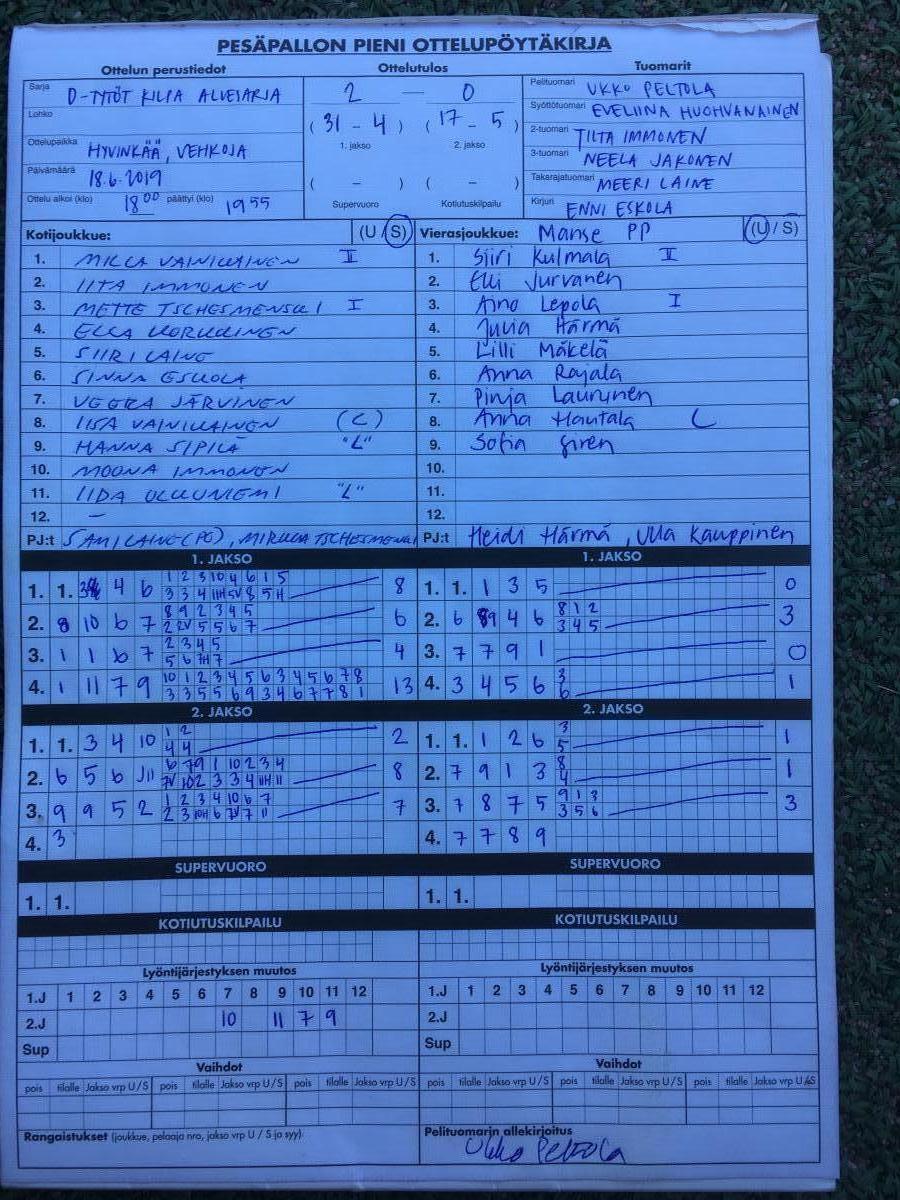 PESÄPALLON PIENI OTTELUPÖYTÄKIRJA
Ottelun perustiedot
Sarja D-TYTÖT KILPA ALUESARJA
Lohko
Ottelupaikka HYVINKÄÄ, VEHKOJA
Päivämäärä 18.6.2019
Ottelu alkoi (klo) 18 00 päättyi (klo) 19 55
Ottelutulos
2 — 0
( 31 - 4 ) ( 17 - 5 )
1. jakso 2. jakso
( - ) ( - )
Supervuoro Kotiutuskilpailu
Tuomarit
Pelituomari UKKO PELTOLA
Syöttötuomari EVELIINA HUOHVANAINEN
2-tuomari TILTA IMMONEN
3-tuomari NEELA JAKONEN
Takarajatuomari MEERI LAINE
Kirjuri ENNI ESKOLA
Kotijoukkue: (U / S)
1. MILLA VAINIKAINEN I
2. IITA IMMONEN
3. METTE TSCHESMENSKI I
4. ELLA KORKKINEN
5. SIIRI LAINE
6. SINNA ESKOLA
7. VEERA JÄRVINEN
8. IISA VAINIKAINEN (C)
9. HANNA SIPILÄ "L"
10. MOONA IMMONEN
11. IIDA ULKUNIEMI "L"
12. —
PJ:t SAMI LAINE (PE), MIRKKA TSCHESMENSKI
Vierasjoukkue: Manse PP (U / S)
1. Siiri Kulmala II
2. Elli Jurvanen
3. Aino Lepola I
4. Julia Härmä
5. Lilli Mäkelä
6. Anna Rajala
7. Pinja Laurynen
8. Anna Hautala C
9. Sofia Siren
10.
11.
12.
PJ:t Heidi Härmä, Ulla Kauppinen
1. JAKSO
1 2 3 10 4 6 1 5
1. 1. 4 6 3 3 4 11H 5V 8 5 H 8
8 9 2 3 4 5
2. 8 10 6 7 2 2V 5 5 6 7 6
2 3 4 5
3. 1 1 6 7 5 6 7H 7 4
10 1 2 3 4 5 6 3 4 5 6 7 8
4. 1 11 7 9 3 3 5 5 6 9 3 4 6 7 7 8 1 13
1. JAKSO
1. 1. 1 3 5 0
8 1 2
2. 6 9 4 6 3 4 5 3
3. 7 7 9 1 0
3
4. 3 4 5 6 6 1
2. JAKSO
1 2
1. 1. 3 4 10 4 4 2
6 7 9 1 10 2 3 4
2. 6 5 6 J11 7V 10 2 3 3 4 11H 11 8
1 2 3 4 10 6 7
3. 9 9 5 2 2 3 10H 6 7V 7 11 7
4. 3
2. JAKSO
3
1. 1. 1 2 6 5 1
8
2. 7 9 1 3 4 1
9 1 3
3. 7 8 7 5 3 5 6 3
4. 7 7 8 9
SUPERVUORO
1. 1.
SUPERVUORO
1. 1.
KOTIUTUSKILPAILU
KOTIUTUSKILPAILU
Lyöntijärjestyksen muutos
1.J 1 2 3 4 5 6 7 8 9 10 11 12
2.J 10 11 7 9
Sup
Lyöntijärjestyksen muutos
1.J 1 2 3 4 5 6 7 8 9 10 11 12
2.J
Sup
Vaihdot
pois tilalle Jakso vrp U / S pois tilalle Jakso vrp U / S pois tilalle Jakso vrp U / S
Vaihdot
pois tilalle Jakso vrp U / S pois tilalle Jakso vrp U / S pois tilalle Jakso vrp U / S
Rangaistukset (joukkue, pelaaja nro, jakso vrp U / S ja syy):
Pelituomarin allekirjoitus
Ukko Peltola